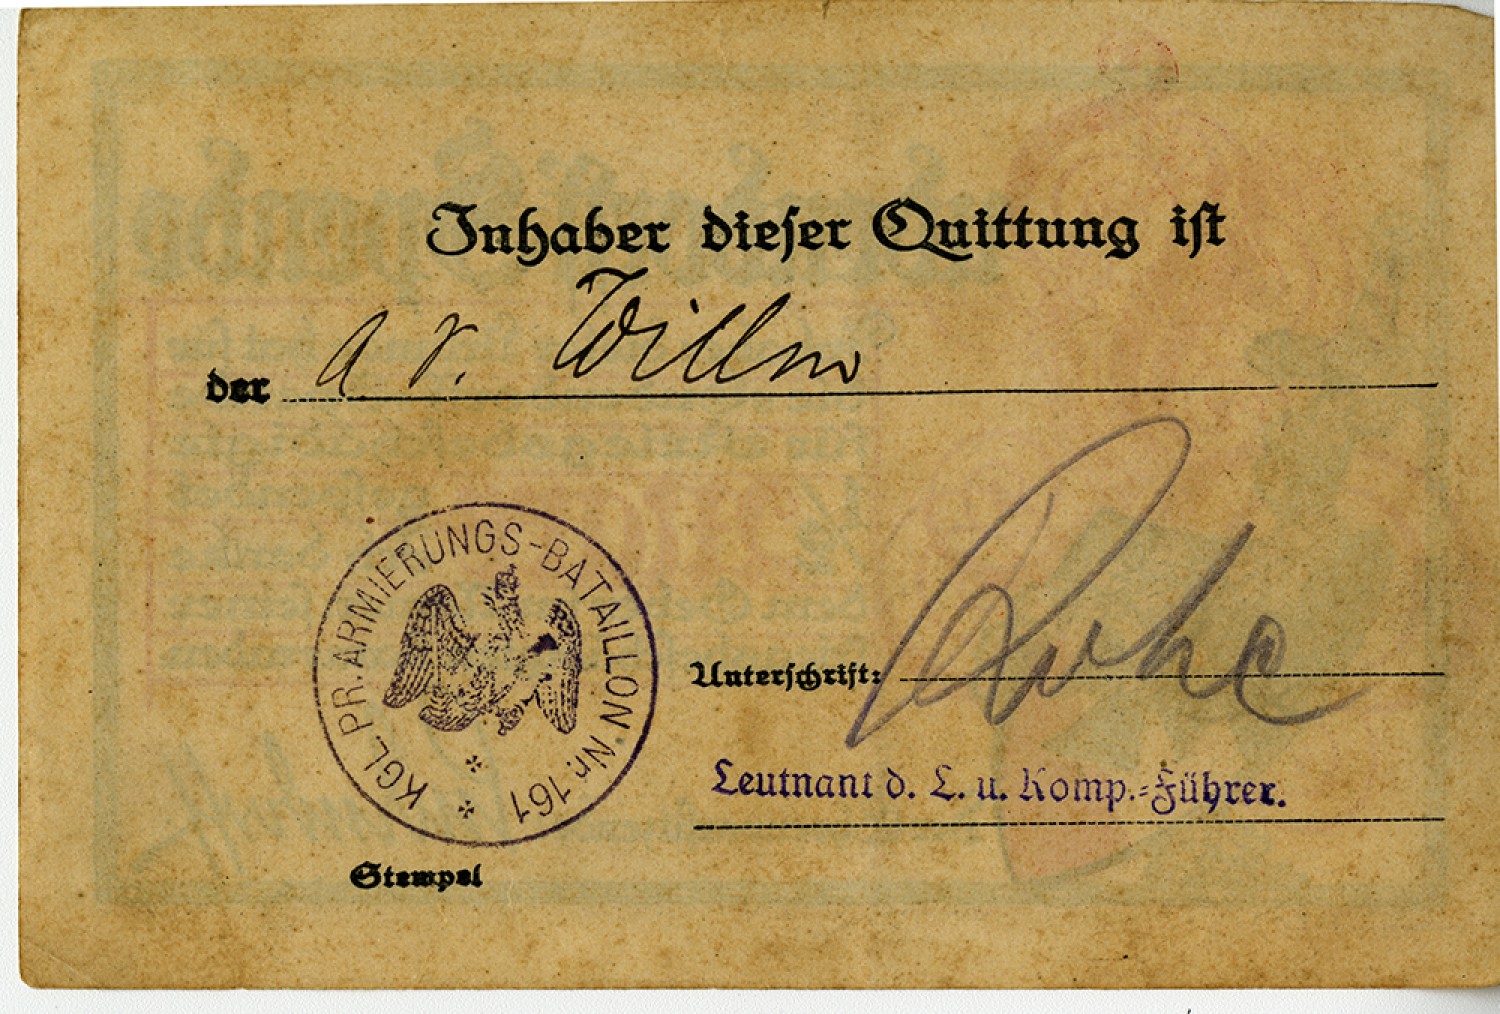 Inhaber dieser Quittung ist
der A. v. Willm
KGL. PR. ARMIERUNGS-BATAILLON Nr. 161
Unterschrift:
Leutnant d. L. u. Komp.-Führer.
Stempel